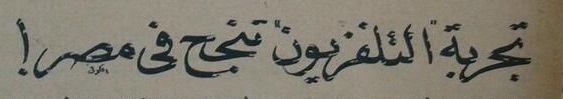 تجربة "التلفزيون" تنجح فى مصر!